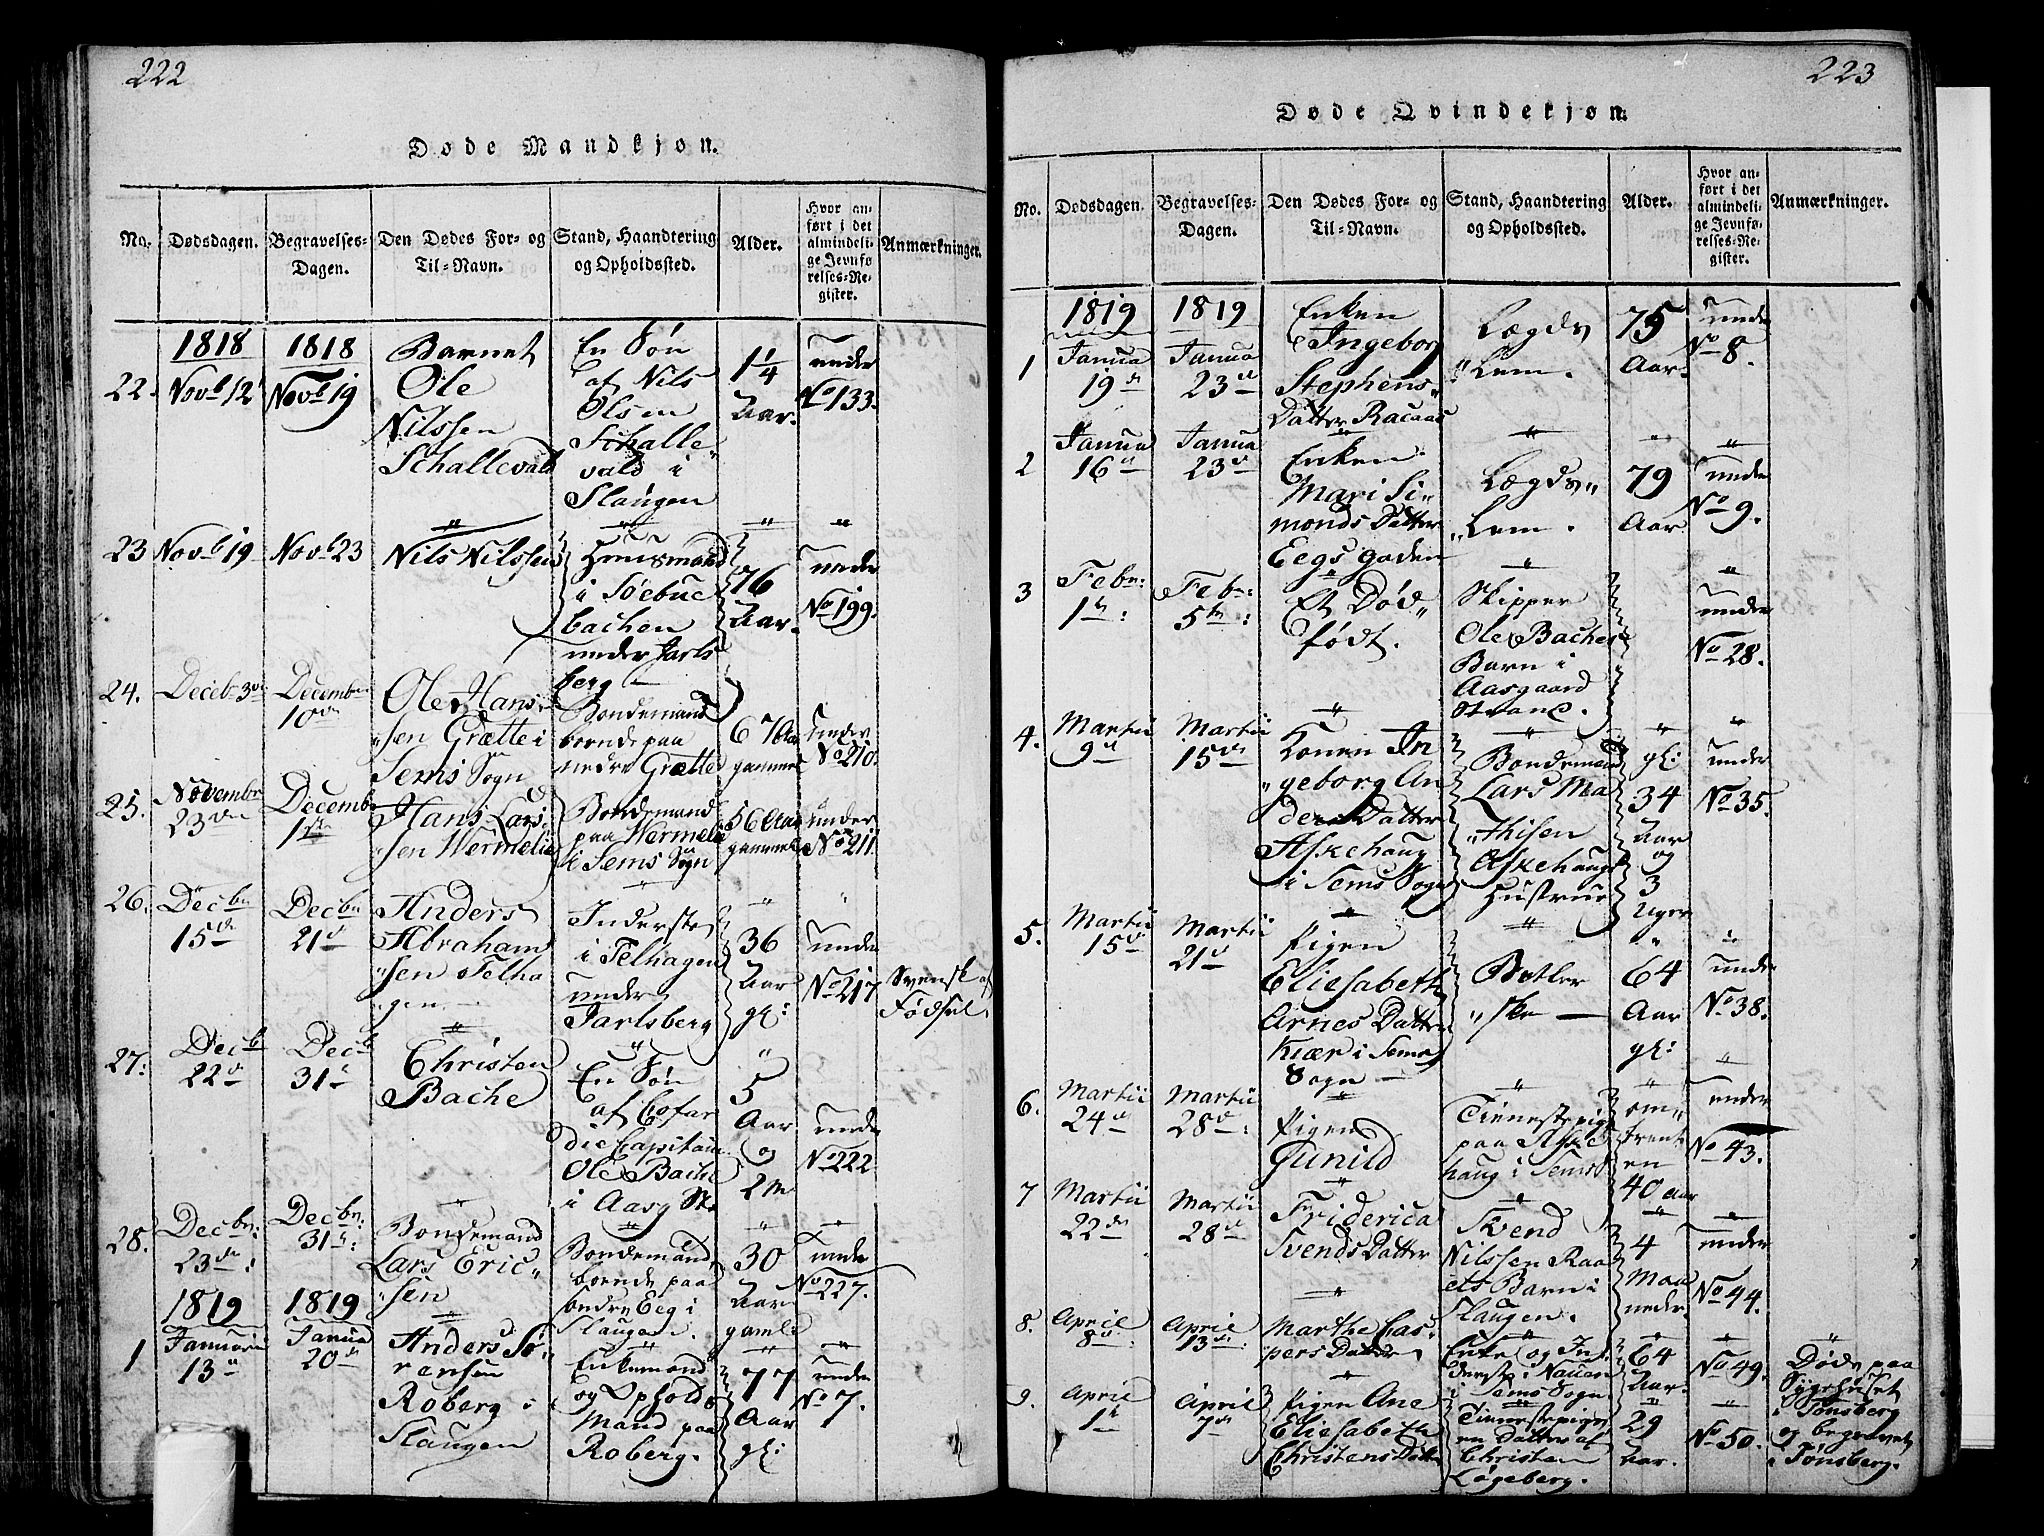 222
Døde Mandkjøn.
No.
Dødsdagen.
Begravelses-
Dagen.
Den Dødes For- og
Til-Navn.
Stand, Haandtering
og Opholdssted.
Alder.
Hvor an-
ført i det
almindeli-
ge Jevnfø
relses-Re-
gister.
Anmærkninger.
1818
1818
22.
Novb 12
Novb 19
Barnet
Ole
Nilssen
Schallevald
En Søn
af Nils
Olsen
Schalle
vald i
Slaugen
1 1/4
Aar.
under
No 133.
23
Novb 19
Novb 23
Nils Nilssen
Huusmand
i Søebue
bachen
under Jarls
berg
76
Aar.
under
No 199.
24.
Decbr 3
December
10
Ole Hans
sen Grætte i
Sems Sogn
Bondemand
boende paa
nedre Grætte
67 Aar
gammel
under
No 210.
25.
November
23
Decemb
1ste
Hans Lars
sen Wermelie
Bondemand
paa Wermelie
i Sems Sogn
56 Aar
gammel
under
No 211.
26.
Decbr
15
Decbr
21
Anders
Abraham
sen Telha
gen
Inderste
i Telhagen
under
Jarlsberg
36
Aar
gl:
under
No 217
Svensk af
Fødsel.
27.
Decb
22
Decb
31
Christen
Bache
En Søn
af Cofar
die Capitain
Ole Bache
i Aasg St.
5
Aar
og
2 M
under
No 222
28.
Decbr:
23
Decbr:
31
Bondemand
Lars Eric
sen
Bondemand
boende paa
søndre Eeg i
Slaugen.
30
Aar
gaml:
under
No 227.
1819
1819
1
Januarii
13
Janua
20
Anders Sø
rensen
Roberg i
Slaugen
Enkemand
og Opholds
Mand paa
Roberg.
77
Aar
gl:
under
No 7.
223
Døde Qvindekjøn.
No.
Dødsdagen.
Begravelses-
Dagen.
Den Dødes For- og
Til-Navn.
Stand, Haandtering
og Opholdssted.
Alder.
Hvor an-
ført i det
almindeli-
ge Jevnfø-
relses-Re-
gister.
Anmærkninger.
1819
1819
1
Janua
19
Janua
23
Enken
Ingeborg
Stephens
Datter Racaas
Lægds
Lem.
75
Aar.
under
No 8.
2
Janua
16
Janua
23
Enken
Mari Si
monds Datter
Eegsgaden
Lægds
Lem.
79
Aar
under
No 9.
3
Febr:
1
Febr:
5
Et Død
født.
Skipper
Ole Baches
Barn i
Aasgaard
Strand.
under
No 28.
4.
Martii
9
Martii
15
Konen In
geborg An
ders Datter
Askehaug
i Sems Sogn
Bondemand
Lars Ma
thisen
Askehaugs
Hustrue
gl:
34
Aar
og
3
Uger
under
No 35.
5.
Martii
15
Martii
21
Pigen
Eliesabeth
Arnes Datter
Kiær i Sems
Sogn
Betler
ske
64
Aar
gl:
under
No 38.
6.
Martii
24
Martii
28
Pigen
Gunild
Tienestepige
paa Aske
haug i Sems
om
trent
en
40 aar
under
No 43.
7
Martii
22
Martii
28
Friderica
Svends Datter
Svend
Nilssen Raa
ets Barn i
Slaugen.
4
Maa
neder.
under
No 44.
8.
April
8
April
13
Marthe Cas
pers Datter
Enke og In
derst i Nauen
i Sems Sogn
64
Aar.
No 49.
Døde paa
Sygehuset
i Tønsberg
og begravet
i Tønsberg.
9.
April
1
April
7
Pigen Ane
Eliesabeth
Christens Datter
Tienestepige
en Datter af
Christen
Løgeberg.
29
Aar.
No 50.